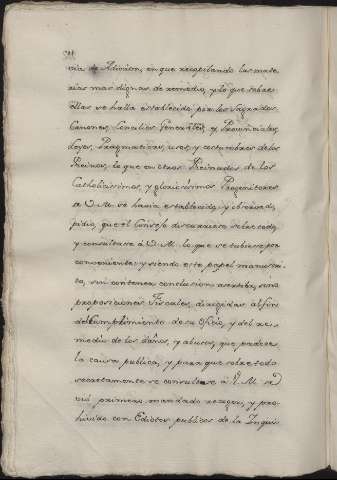 cia de Adicion, en que recopilando las mate-
rias mas dignas de remedio, y lo que sobre
ellas se halla establecido por los Sagrados
Canones, Concilios Generales, y Provinciales,
Leyes, Pragmaticas, usos, y costumbres de los
Reinos, lo que en otros Reinados de los
Catholicissimos, y gloriosissimos Progenitores
de V. M. se havia establecido, y observado,
pidio, que el Consejo discurriese sobre todo,
y consultase à V. M. lo que se tubiese por
conveniente; y siendo este papel manuscri-
to, sin contener conclusion asertiba, sino
proposiciones Fiscales, dirigidas al fin
del cumplimiento de su Oficio, y del re-
medio de los daños, y abusos, que padece
la causa publica, y para que sobre todo
secretamente se consultase à V. M. se
vió primero mandado recoger, y pro-
hivido con Edictos publicos de la Inqui-